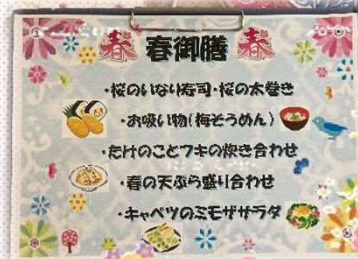 春 春御膳 春
・桜のいなり寿司・桜の太巻き
・お吸い物(梅そうめん)
・たけのことフキの炊き合わせ
・春の天ぷら盛り合わせ
・キャベツのミモザサラダ